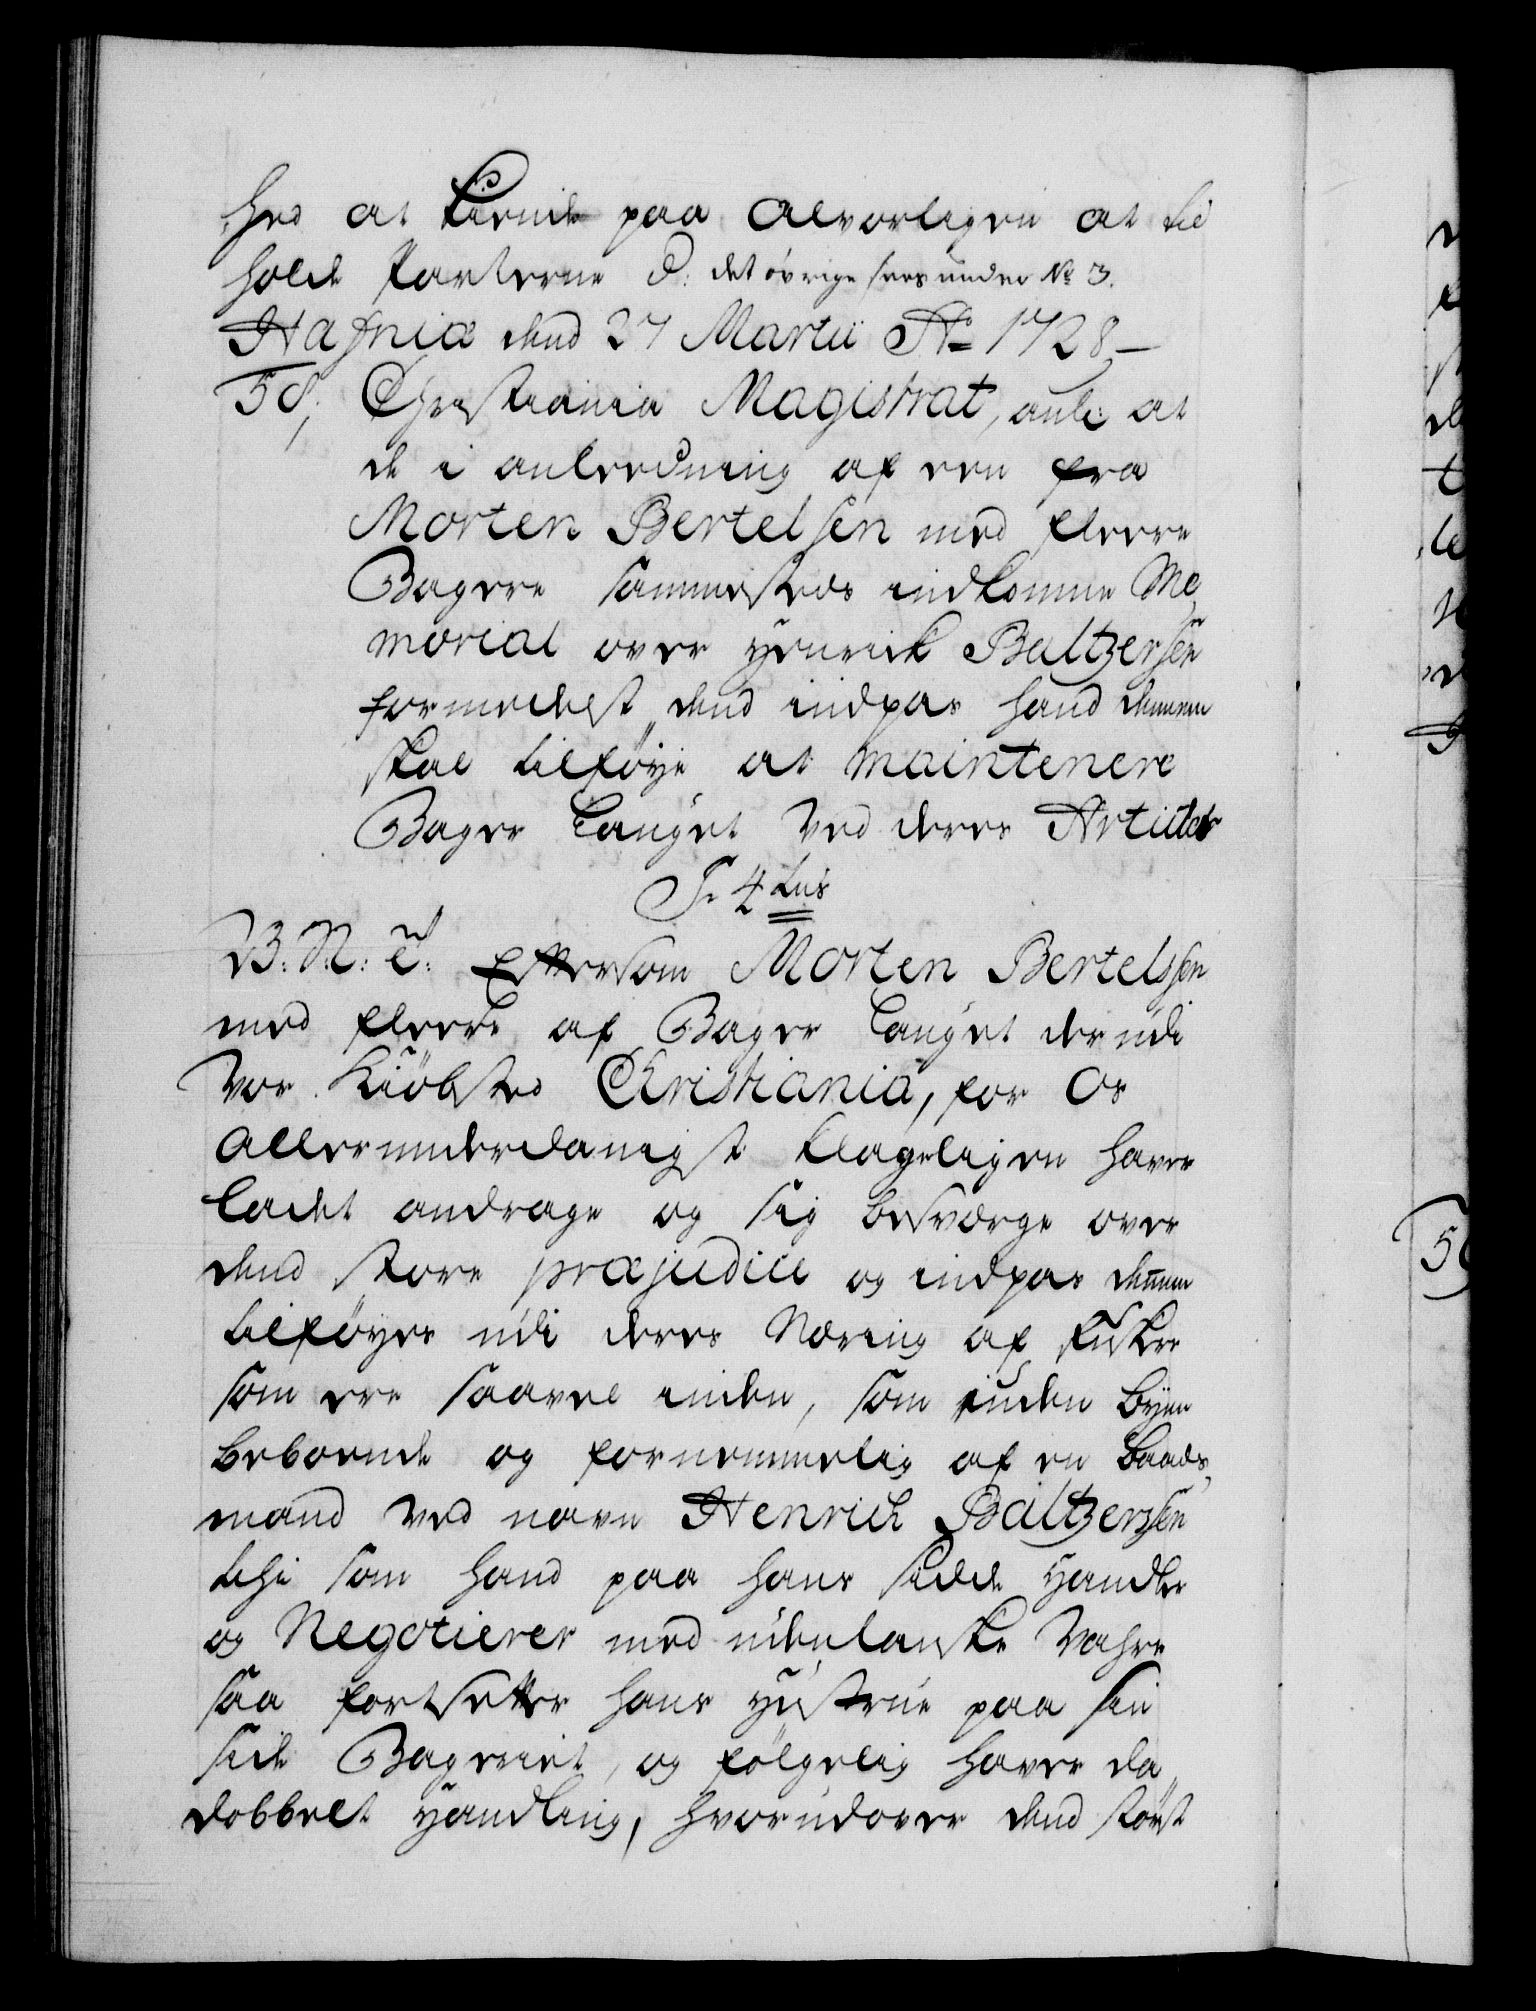 hed at kiende paa alvorligen at til
holde Parterne ɔ: det övrige sees under No 3.
Hafniæ dend 27 Martii Ao 1728
58, Christiania Magistrat, anl: at
de i anledning af een fra
Morten Bertelsen med fleere
Bagere sammesteds indkomne Me
morial over Henrich Baltzersen
formedelst dend indpas hand dennem
skal tilföye at maintenere
Bager lauget ved deres Articler
Fr 4tus
V: N: T: Eftersom Morten Bertelssen
med fleere af Bager lauget der udi
vor Kiöbsted Christiania, for Os
allerunderdanigst klageligen haver
ladet andrage og sig besværge over
dend store præjudice og indpas dennem
tilföyes udi deres Næring af Fuskere
som ere saavel inden, som uden byen
beboende og fornemmelig af en baads
mand ved navn Henrich Baltzerssen
thi som hand paa hans side handler
og Negotierer med udenlandske vahre
saa fortsetter hans hustrue paa sin
side Bageriet, og fölgelig haver da
dobbelt handling, hvorudover dend störst